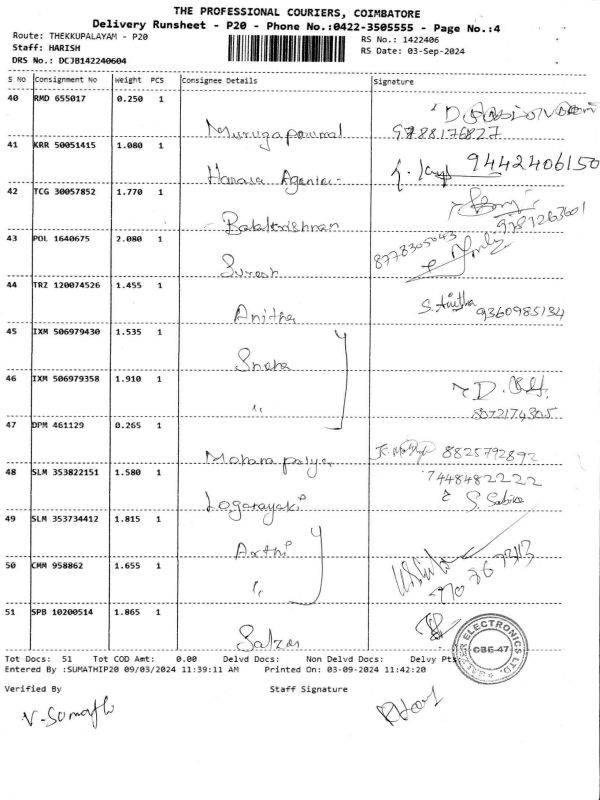 THE PROFESSIONAL COURIERS, COIMBATORE
Delivery Runsheet - P20 - Phone No.:0422-3505555 - Page No.:4
Route: THEKKUPALAYAM - P20
RS No.: 1422406
Staff: HARISH
RS Date: 03-Sep-2024
DRS No.: DCJB142240604
S No Consignment No Weight PCS Consignee Details Signature
40 RMD 655017 0.250 1
Murugaperumal
9788176827
41 KRR 50051415 1.080 1
9442406150
42 TCG 30057852 1.770 1
Balakrishnan 9787263601
43 POL 1640675 2.080 1
8778305043
Suresh
44 TRZ 120074526 1.455 1
Anitha S. Anitha 9360985134
45 IXM 506979430 1.535 1
Sneha
46 IXM 506979358 1.910 1
" D.
8072174305
47 DPM 461129 0.265 1
8825792892
48 SLM 353822151 1.580 1 7448482222
Loganayaki S. Sabika
49 SLM 353734412 1.815 1
Arthi
50 CMM 958862 1.655 1
"
51 SPB 10200514 1.865 1
Salzer
SALZER ELECTRONICS LTD.
CBE-47
Tot Docs: 51 Tot COD Amt: 0.00 Delvd Docs: Non Delvd Docs: Delvy Pt
Entered By :SUMATHIP20 09/03/2024 11:39:11 AM Printed On: 03-09-2024 11:42:20
Verified By Staff Signature
V-Sumathi